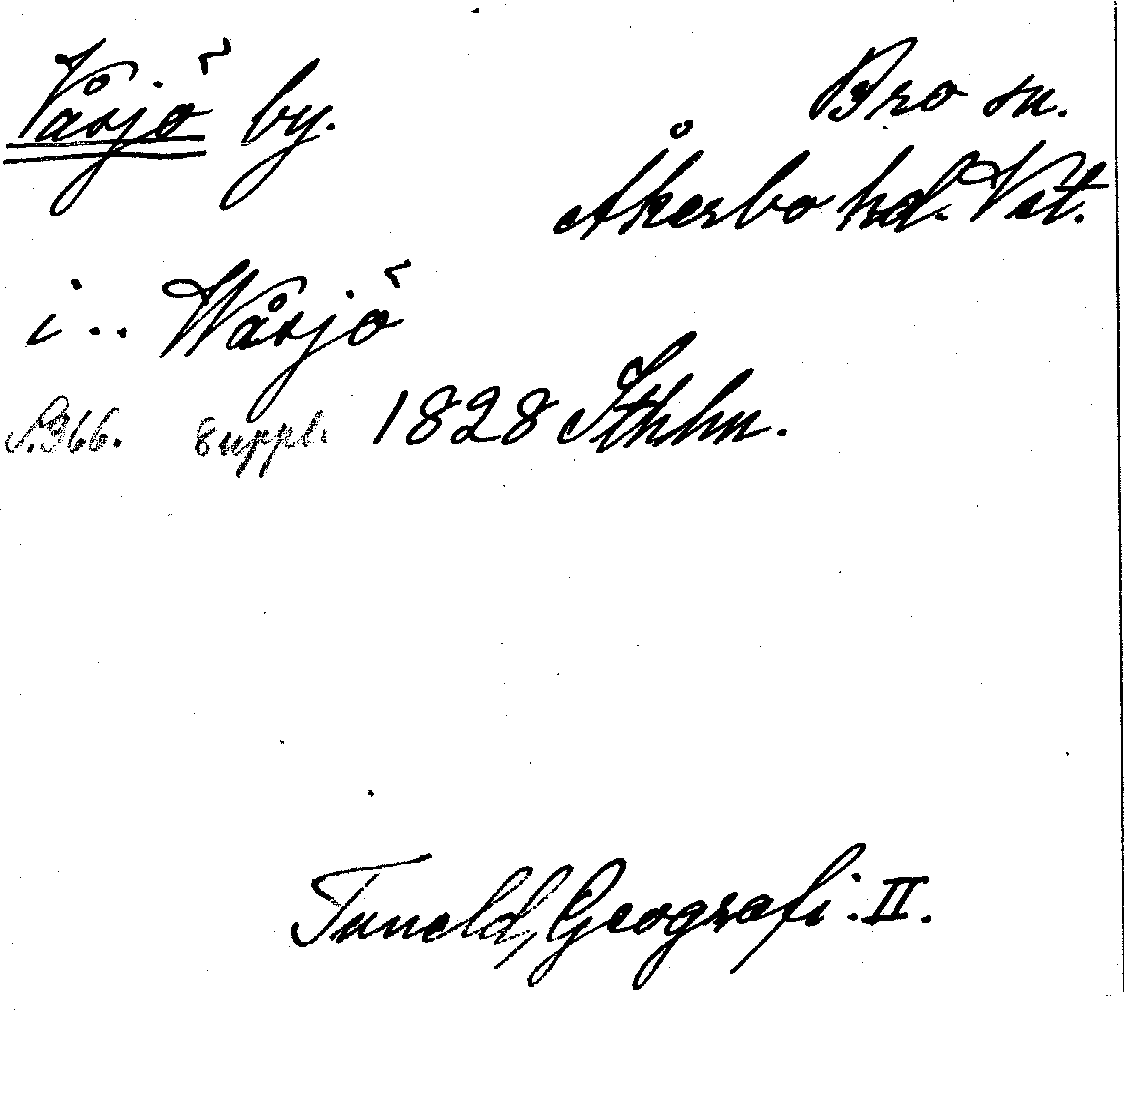 Våsjö by. Bro sn.
Åkerbo hd. Vst.
i .. Wåsjö
S.366. suppl. 1828 Sthlm.
Tuneld, Geografi. II.